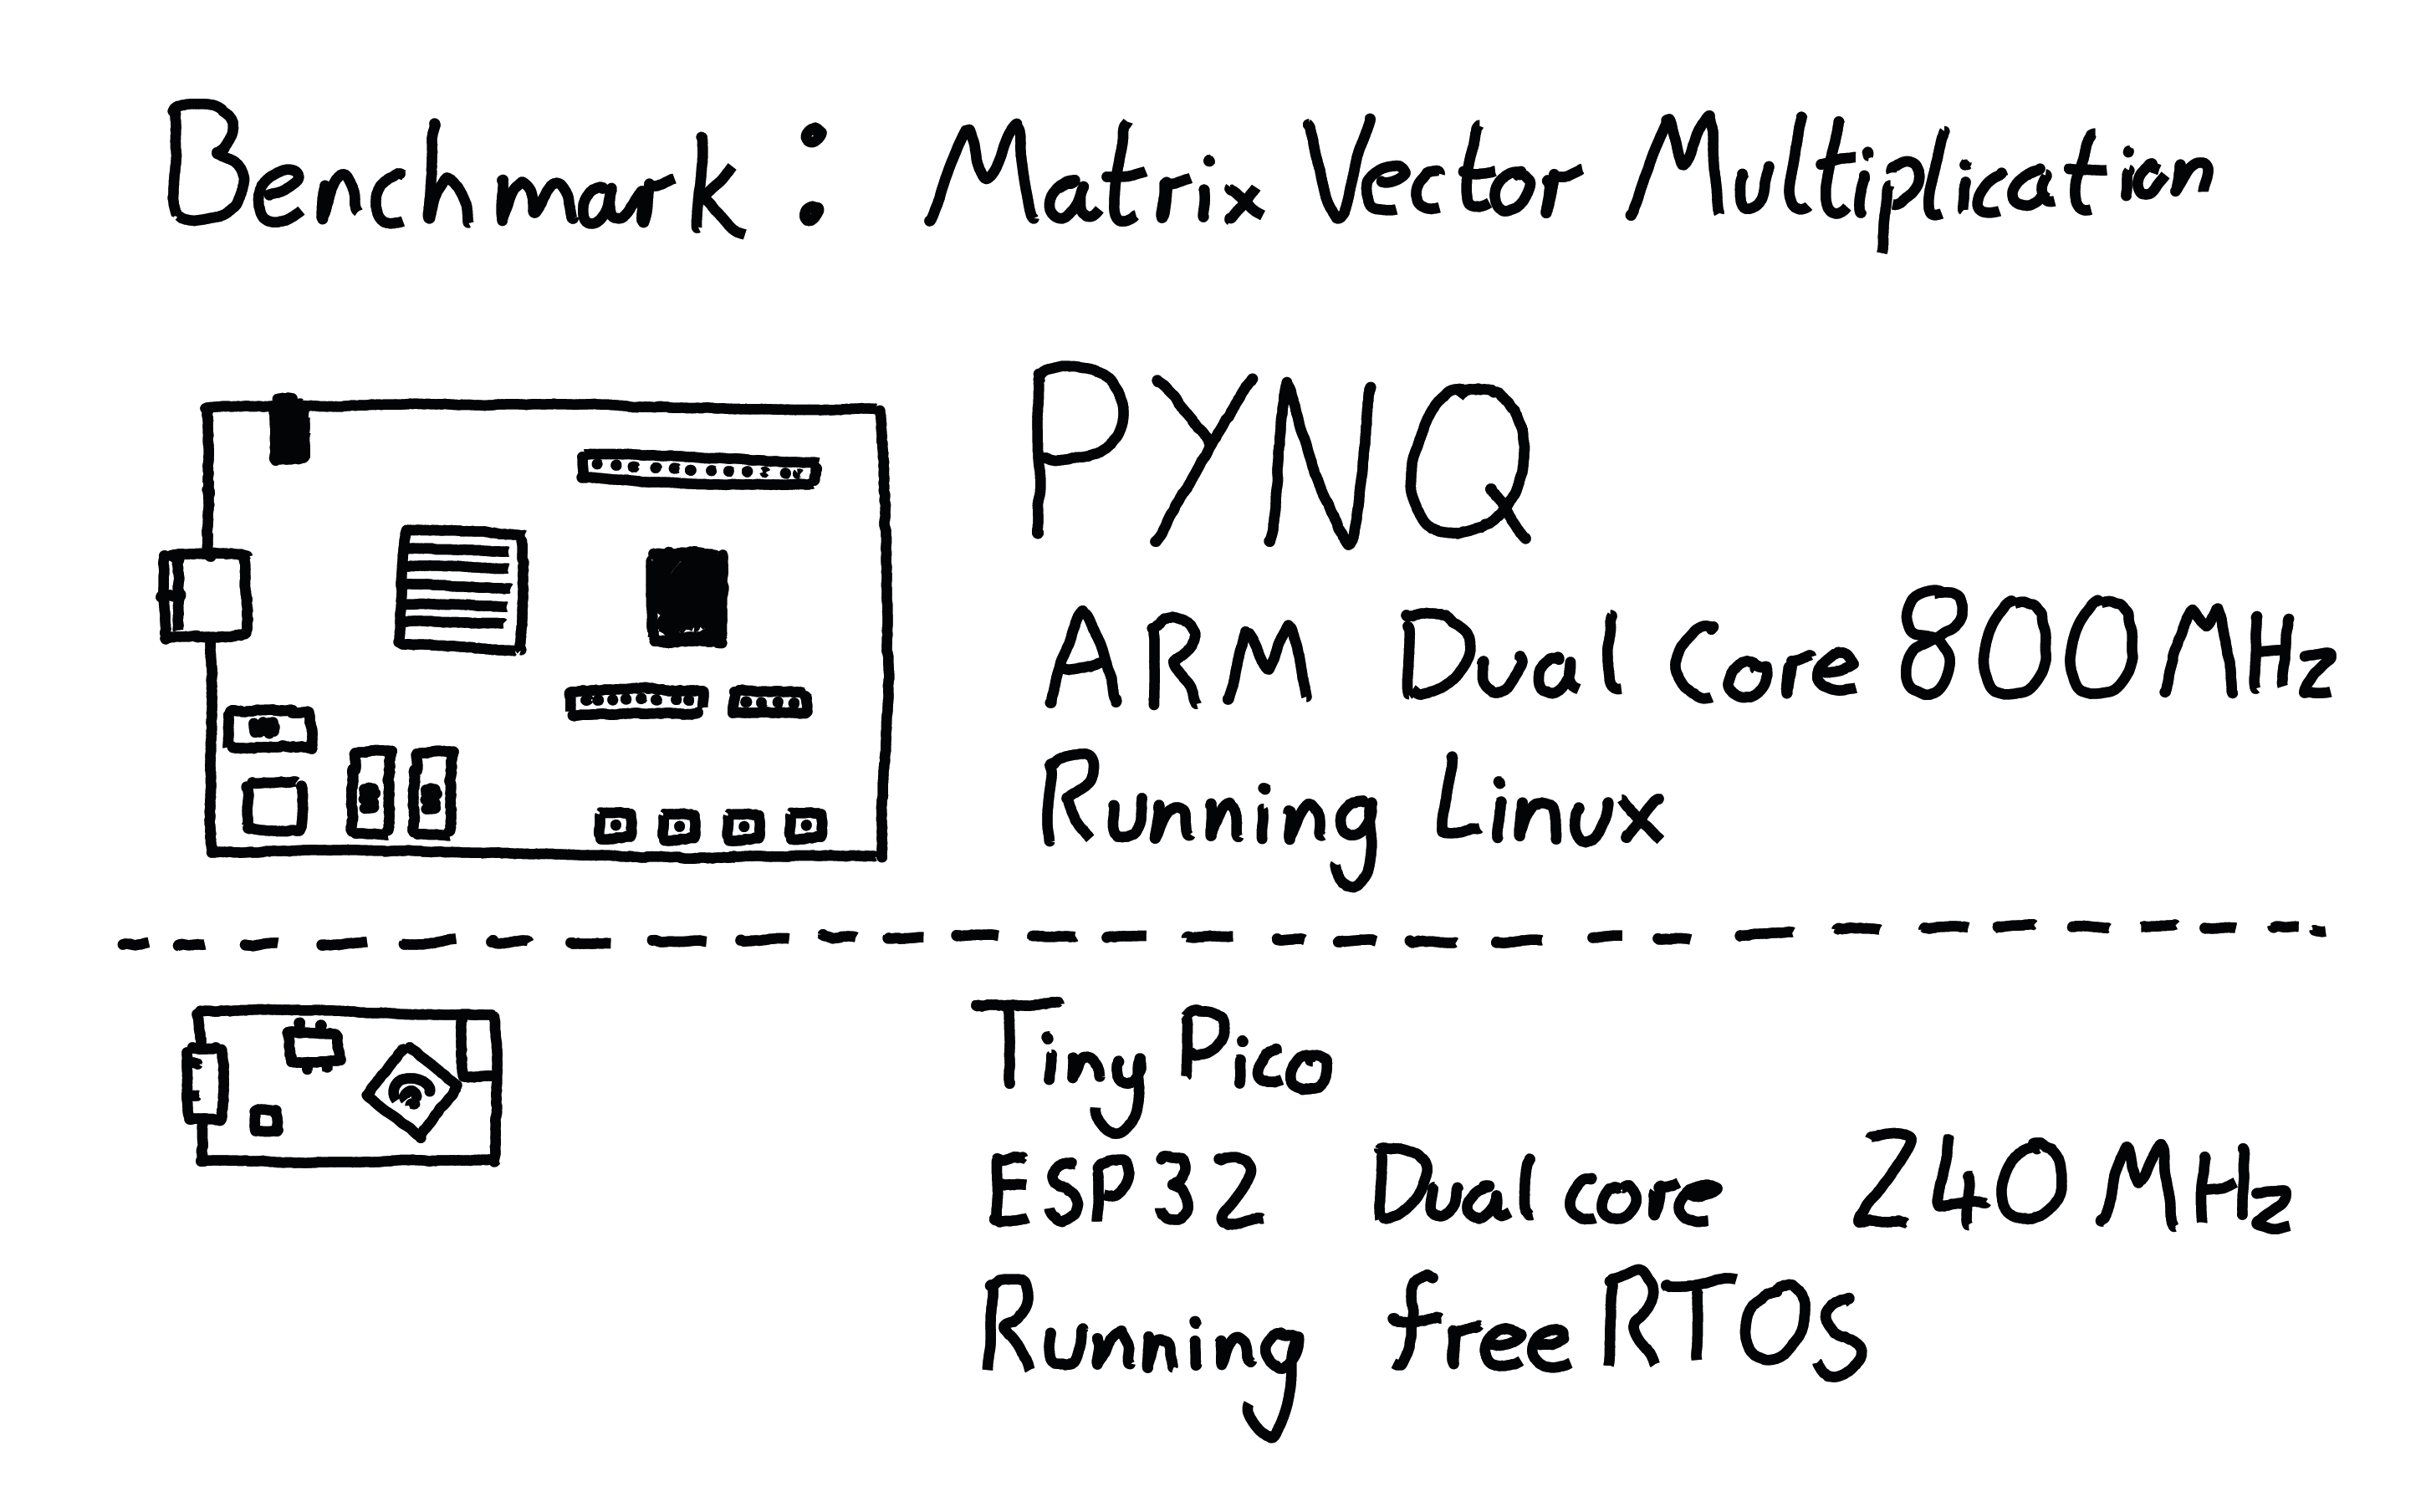 Benchmark: Matrix Vector Multiplication
PYNQ
ARM Dual Core 800MHz
Running Linux
Tiny Pico
ESP32 Dual core 240 MHz
Running freeRTOS